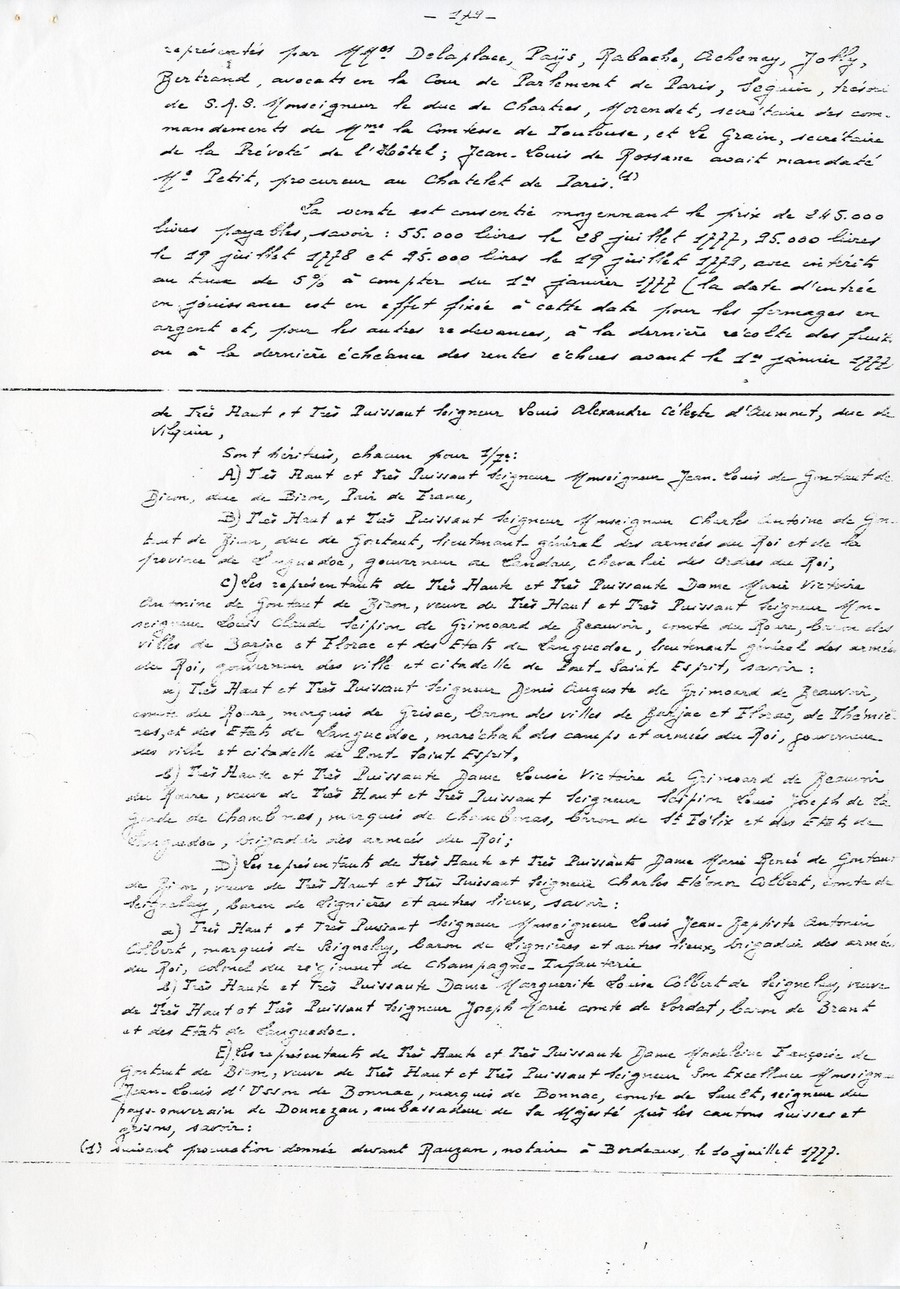 - 179 -
représentés par MMes Delaplace, Païs, Rabache, Acheney, Jolly,
Bertrand, avocats en la Cour de Parlement de Paris, Seguin, trésori
de S.A.S. Monseigneur le duc de Chartres, Morendet, secrétaire des com-
mandements de Mme la Comtesse de Toulouse, et Le Grain, secrétaire
de la Prévôté de l'Hôtel ; Jean-Louis de Rossane avait mandaté
Me Petit, procureur au Chatelet de Paris.(1)
La vente est consentie moyennant le prix de 245.000
livres payables, savoir : 55.000 livres le 28 juillet 1777, 95.000 livres
le 19 juillet 1778 et 95.000 livres le 19 juillet 1779, avec intérêts
au taux de 5% à compter du 1er janvier 1777 (la date d'entrée
en jouissance est en effet fixée à cette date pour les fermages en
argent et, pour les autres redevances, à la dernière récolte des fruits
ou à la dernière échéance des rentes échues avant le 1er janvier 1777
de Très Haut et Très Puissant Seigneur Louis Alexandre Céleste d'Aumont, duc de
Villequier,
Sont héritiers, chacun pour 1/7e :
A) Très Haut et Très Puissant Seigneur Monseigneur Jean-Louis de Gontaut de
Biron, duc de Biron, Pair de France,
B) Très Haut et Très Puissant Seigneur Monseigneur Charles Antoine de Gon-
taut de Biron, duc de Gontaut, lieutenant général des armées du Roi et de la
province de Languedoc, gouverneur de Landau, chevalier des Ordres du Roi,
C) Les représentants de Très Haute et Très Puissante Dame Marie Victoire
Antonine de Gontaut de Biron, veuve de Très Haut et Très Puissant Seigneur Mon-
seigneur Louis Claude Scipion de Grimoard de Beauvoir, comte du Roure, baron des
villes de Barjac et Florac et des Etats de Languedoc, lieutenant général des armées
du Roi, gouverneur des ville et citadelle de Pont Saint Esprit, savoir :
a) Très Haut et Très Puissant Seigneur Denis Auguste de Grimoard de Beauvoir,
comte du Roure, marquis de Grisac, baron des villes de Barjac et Florac, de Thémiè-
res, et des Etats de Languedoc, maréchal des camps et armées du Roi, gouverneur
des ville et citadelle de Pont-Saint-Esprit,
b) Très Haute et Très Puissante Dame Louise Victoire de Grimoard de Beauvoir
du Roure, veuve de Très Haut et Très Puissant Seigneur Scipion Louis Joseph de La
Garde de Chambonas, marquis de Chambonas, baron de St Félix et des Etats de
Languedoc, brigadier des armées du Roi ;
D) Les représentants de Très Haute et Très Puissante Dame Marie Renée de Gontaut
de Biron, veuve de Très Haut et Très Puissant Seigneur Charles Eléonor Colbert, comte de
Seignelay, baron de Lignières et autres lieux, savoir :
a) Très Haut et Très Puissant Seigneur Monseigneur Louis Jean-Baptiste Antonin
Colbert, marquis de Seignelay, baron de Lignières et autres lieux, brigadier des armées
du Roi, colonel du régiment de Champagne-Infanterie
b) Très Haute et Très Puissante Dame Marguerite Louise Colbert de Seignelay, veuve
de Très Haut et Très Puissant Seigneur Joseph Marie comte de Lordat, baron de Bram
et des Etats de Languedoc.
E) Les représentants de Très Haute et Très Puissante Dame Madeleine Françoise de
Gontaut de Biron, veuve de Très Haut et Très Puissant Seigneur Son Excellence Monseign-
Jean-Louis d'Usson de Bonnac, marquis de Bonnac, comte de Sault, seigneur du
pays souverain de Donnezan, ambassadeur de Sa Majesté près les cantons suisses et
grisons, savoir :
(1) suivant procuration donnée devant Rauzan, notaire à Bordeaux, le 10 juillet 1777.